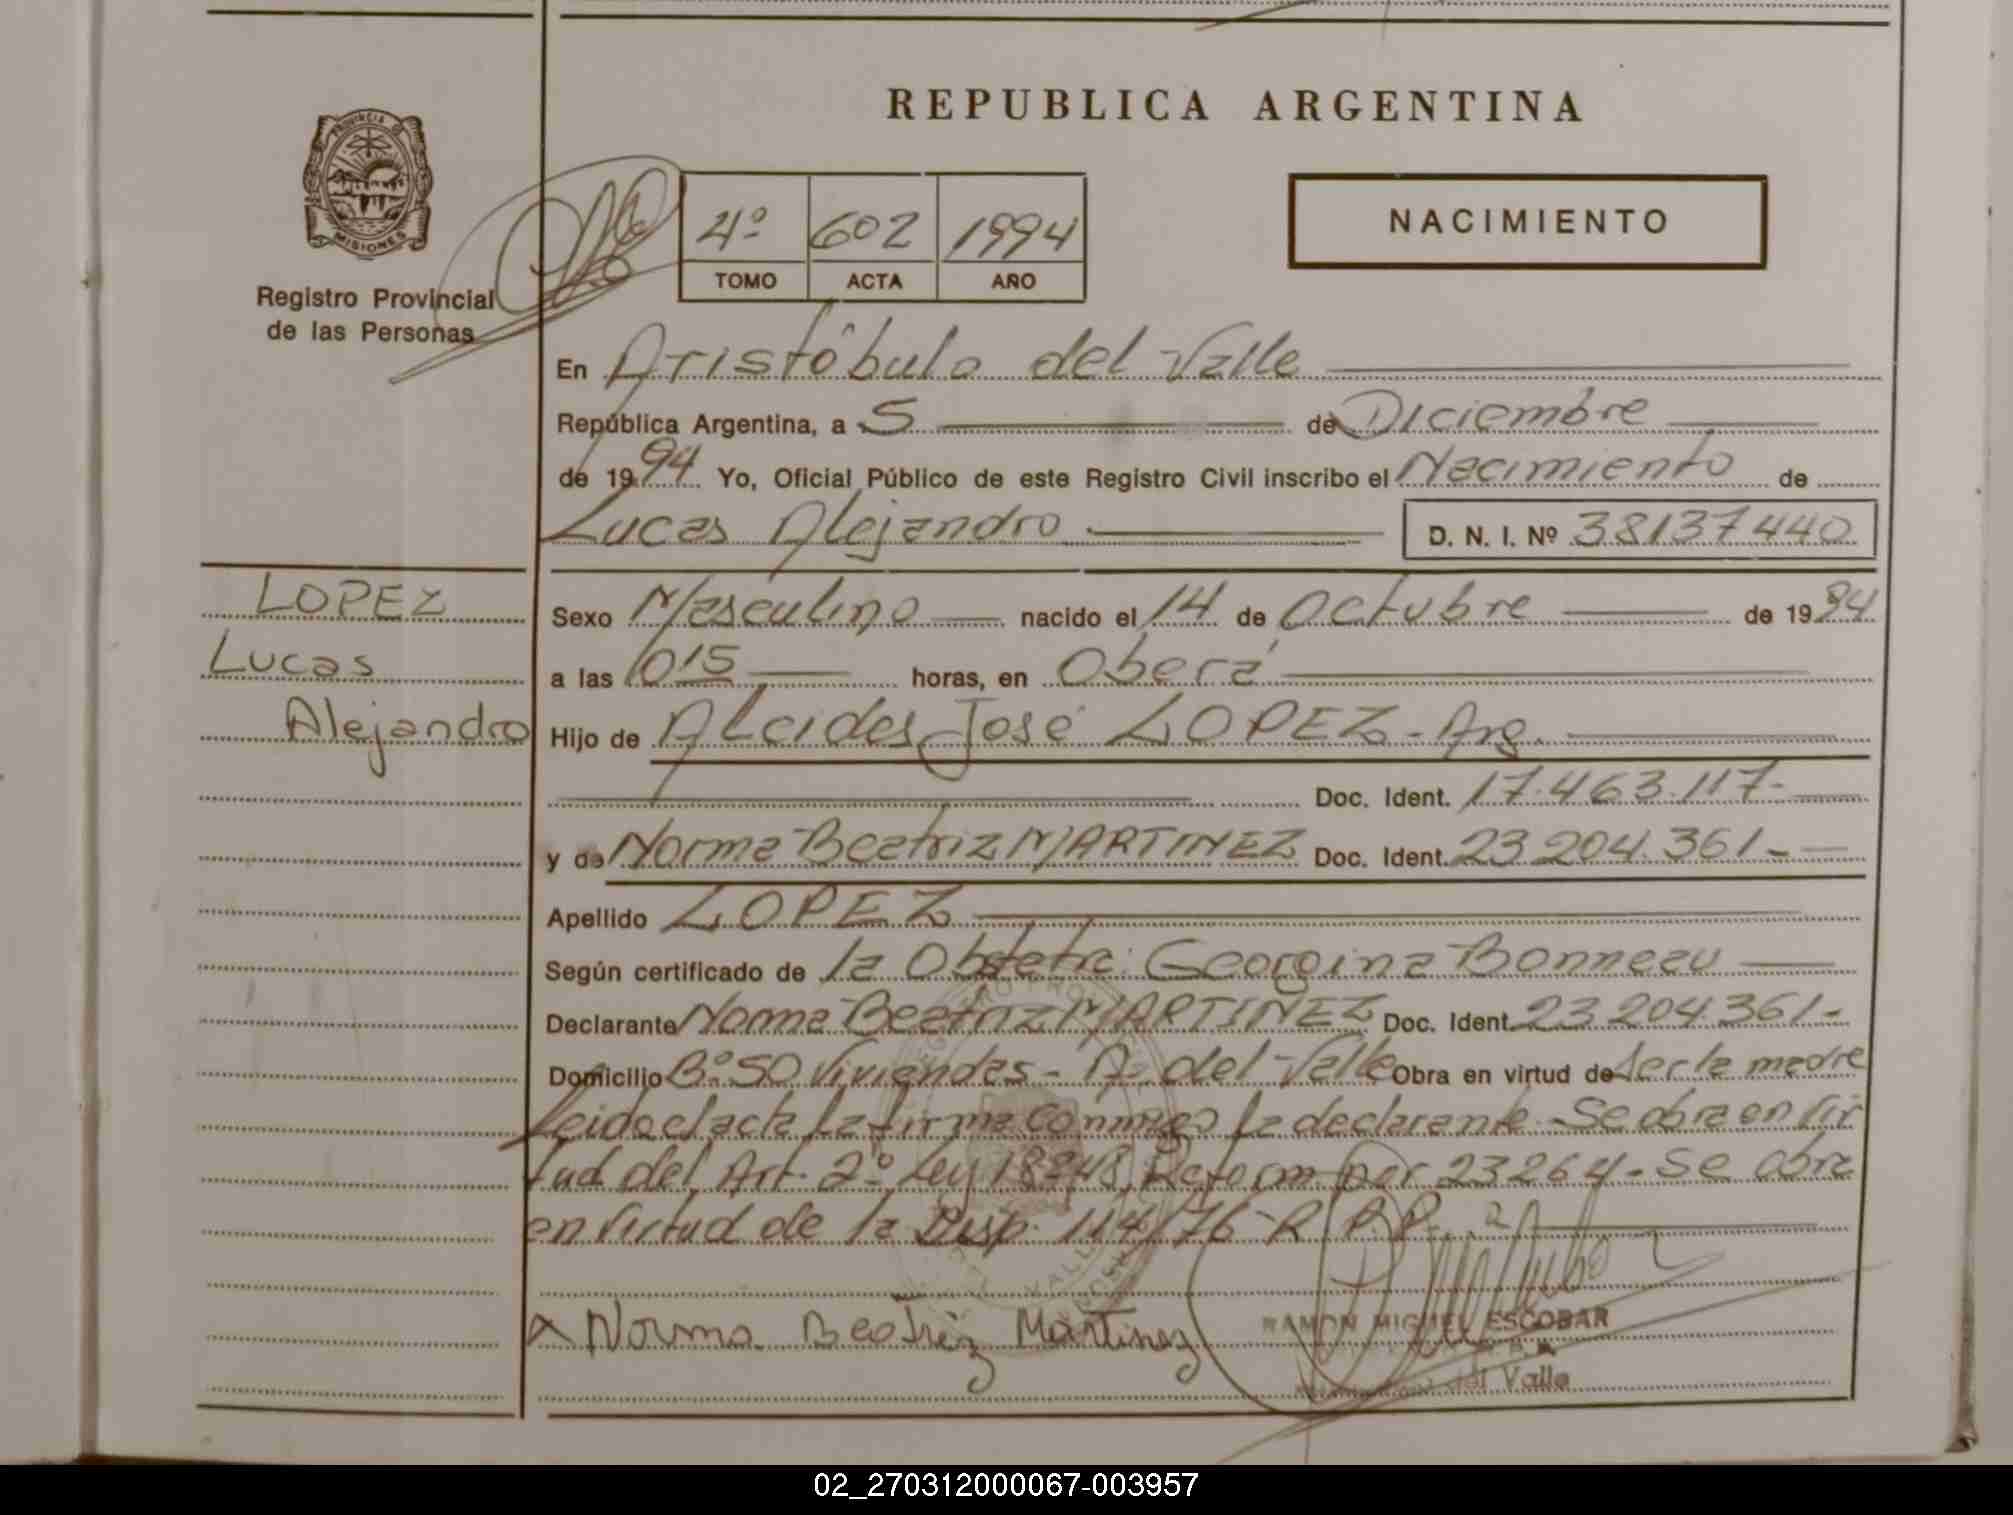 REPUBLICA ARGENTINA
PROVINCIA D
MISIONES
Registro Provincial
de las Personas
4º 602 1994
TOMO ACTA AÑO
NACIMIENTO
En Aristóbulo del Valle
República Argentina, a 5 de Diciembre
de 1994 Yo, Oficial Público de este Registro Civil inscribo el Nacimiento de
Lucas Alejandro D. N. I. Nº 38137440
LOPEZ
Lucas
Alejandro
Sexo Masculino nacido el 14 de Octubre de 1994
a las 015 horas, en Oberá
Hijo de Alcides José LOPEZ - Arg.
Doc. Ident. 17.463.117-
y de Norma Beatriz MARTINEZ Doc. Ident. 23 204.361-
Apellido LOPEZ
Según certificado de la Obstetra: Georgina Bonneau
Declarante Norma Beatriz MARTINEZ Doc. Ident. 23 204 361-
Domicilio Bº 50 Viviendas - A. del Valle Obra en virtud de ser la madre
Leida el acta la firma conmigo la declarante - Se obra en vir
tud del Art. 2º Ley 18248 Reform por 23264 - Se obra
en virtud de la Disp. 114/76 R P P.
x Norma Beatriz Martinez
RAMON MIGUEL ESCOBAR
del Valle
02_270312000067-003957